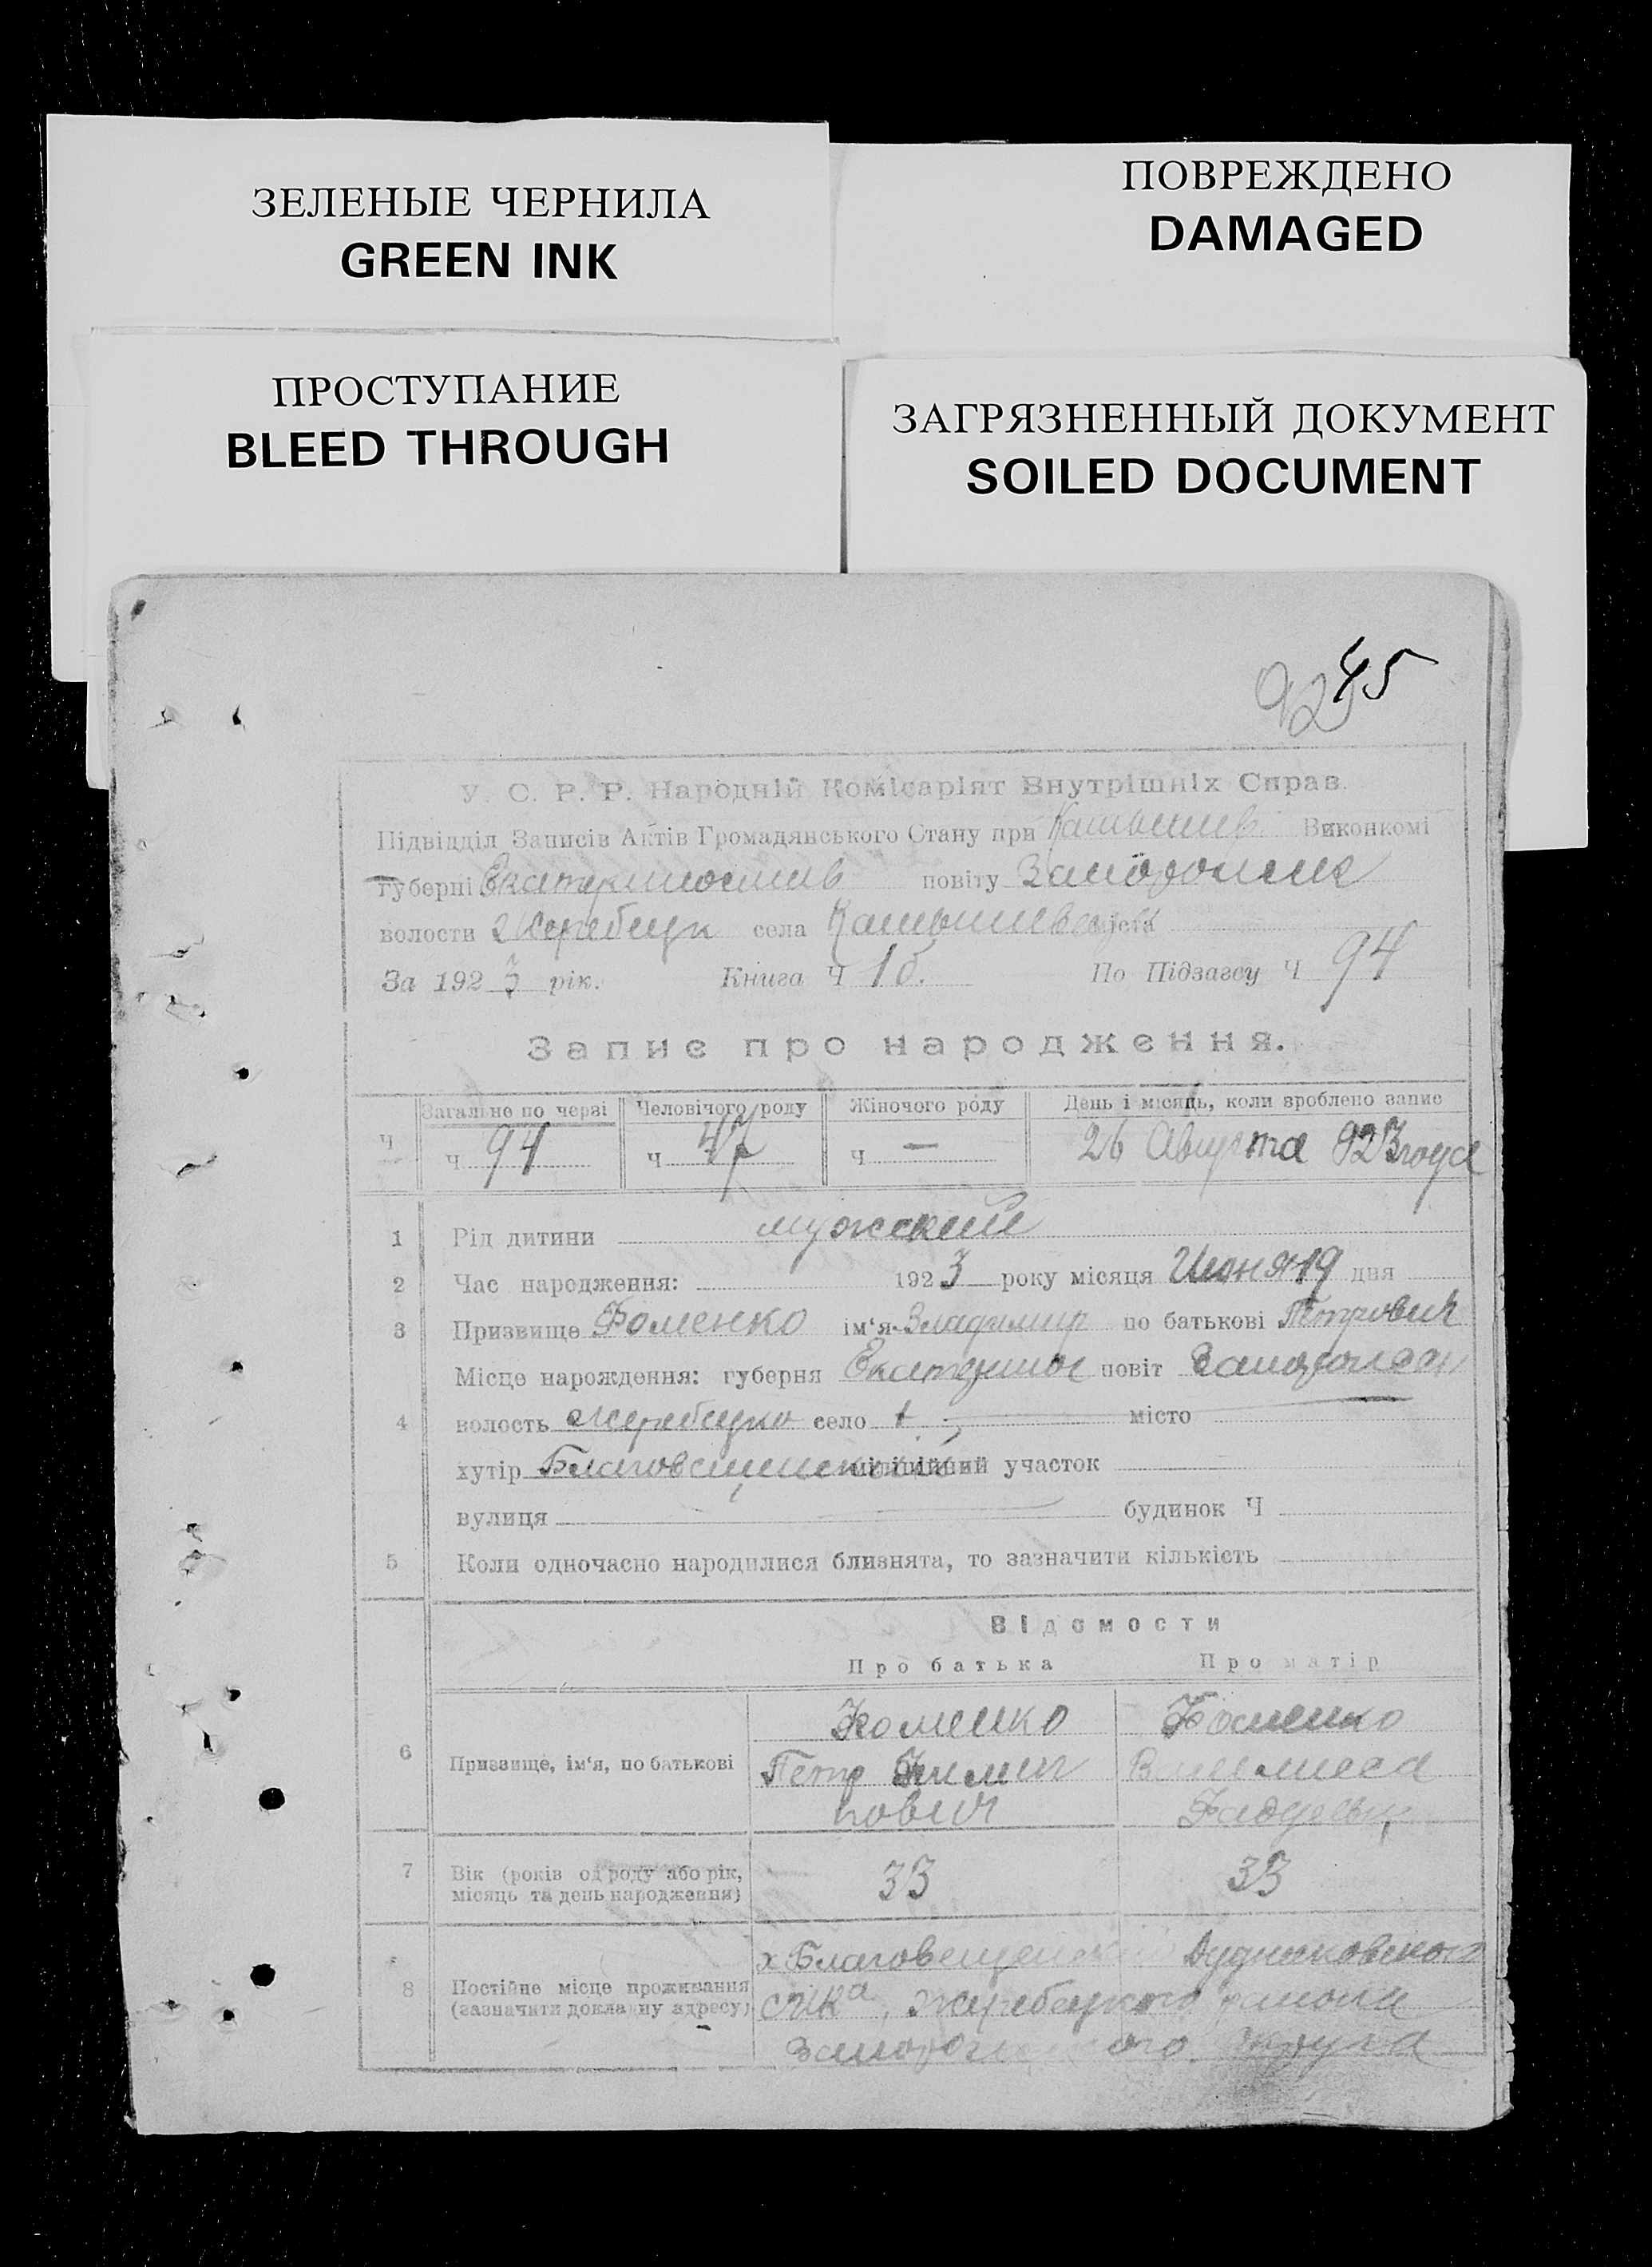 ЗЕЛЕНЫЕ ЧЕРНИЛА
GREEN INK
ПОВРЕЖДЕНО
DAMAGED
ПРОСТУПАНИЕ
BLEED THROUGH
ЗАГРЯЗНЕННЫЙ ДОКУМЕНТ
SOILED DOCUMENT
92 45
У. С. Р. Р. Народній Комісаріят Внутрішніх Справ.
Підвідділ Записів Актів Громадянського Стану при Виконкомі
губерні Екатеринослав повіту
волости Жеребецк села міста
За 1923 рік. Книга Ч 1б. По Підзагсу Ч 94
Запис про народження.
Загальне по черзі Человічого роду Жіночого роду День і місяць, коли зроблено запис
Ч ч 94 ч 47 ч — 26 Августа 923 года
1 Рід дитини мужской
2 Час народження: 1923 року місяця Июня 19 дня
3 Призвище Фоменко ім‘я Владимир по батькові Петрович
Місце нарождення: губерня Екатеринос повіт
4 волость село місто
хутір Благовещенский міліційний участок
вулиця будинок Ч
5 Коли одночасно народилися близнята, то зазначити кількість
Відомости
Про батька Про матір
6 Призвище, ім‘я, по батькові
Фоменко Фоменко
Петр Филип
пович
7 Вік (років од роду або рік, місяць та день народження) 33 33
8 Постійне місце проживання (зазначити докладну адресу)
х Благовещенский
Жеребецкого района
округа